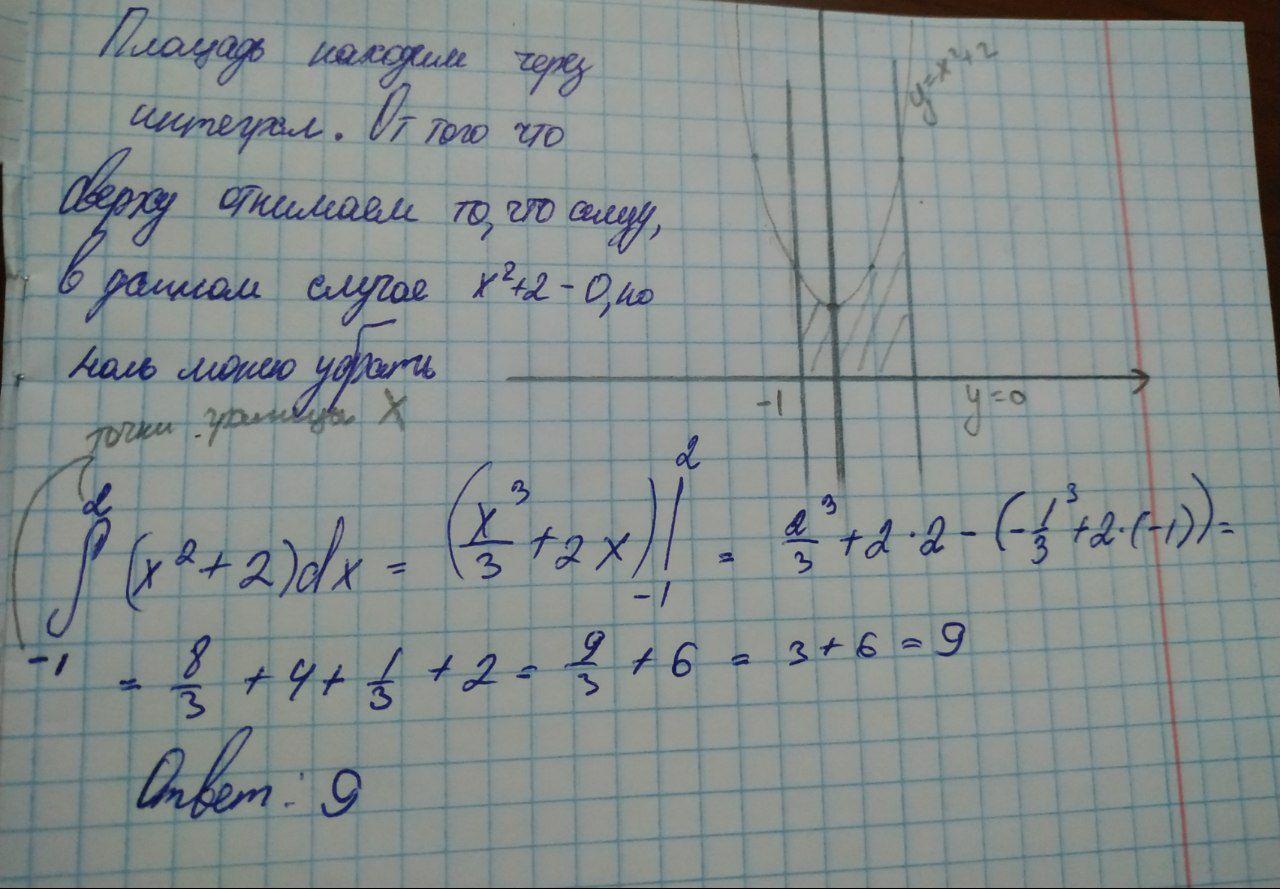 Площадь находим через
интеграл. От того что
сверху отнимаем то, что снизу,
в данном случае x²+2 - 0, но
ноль можно убрать
точки границы X
y=x²+2
-1
y=0
∫₋₁² (x²+2)dx = (x³/3 + 2x)|₋₁² = 2³/3 + 2·2 - (-1³/3 + 2·(-1)) =
= 8/3 + 4 + 1/3 + 2 = 9/3 + 6 = 3 + 6 = 9
Ответ: 9